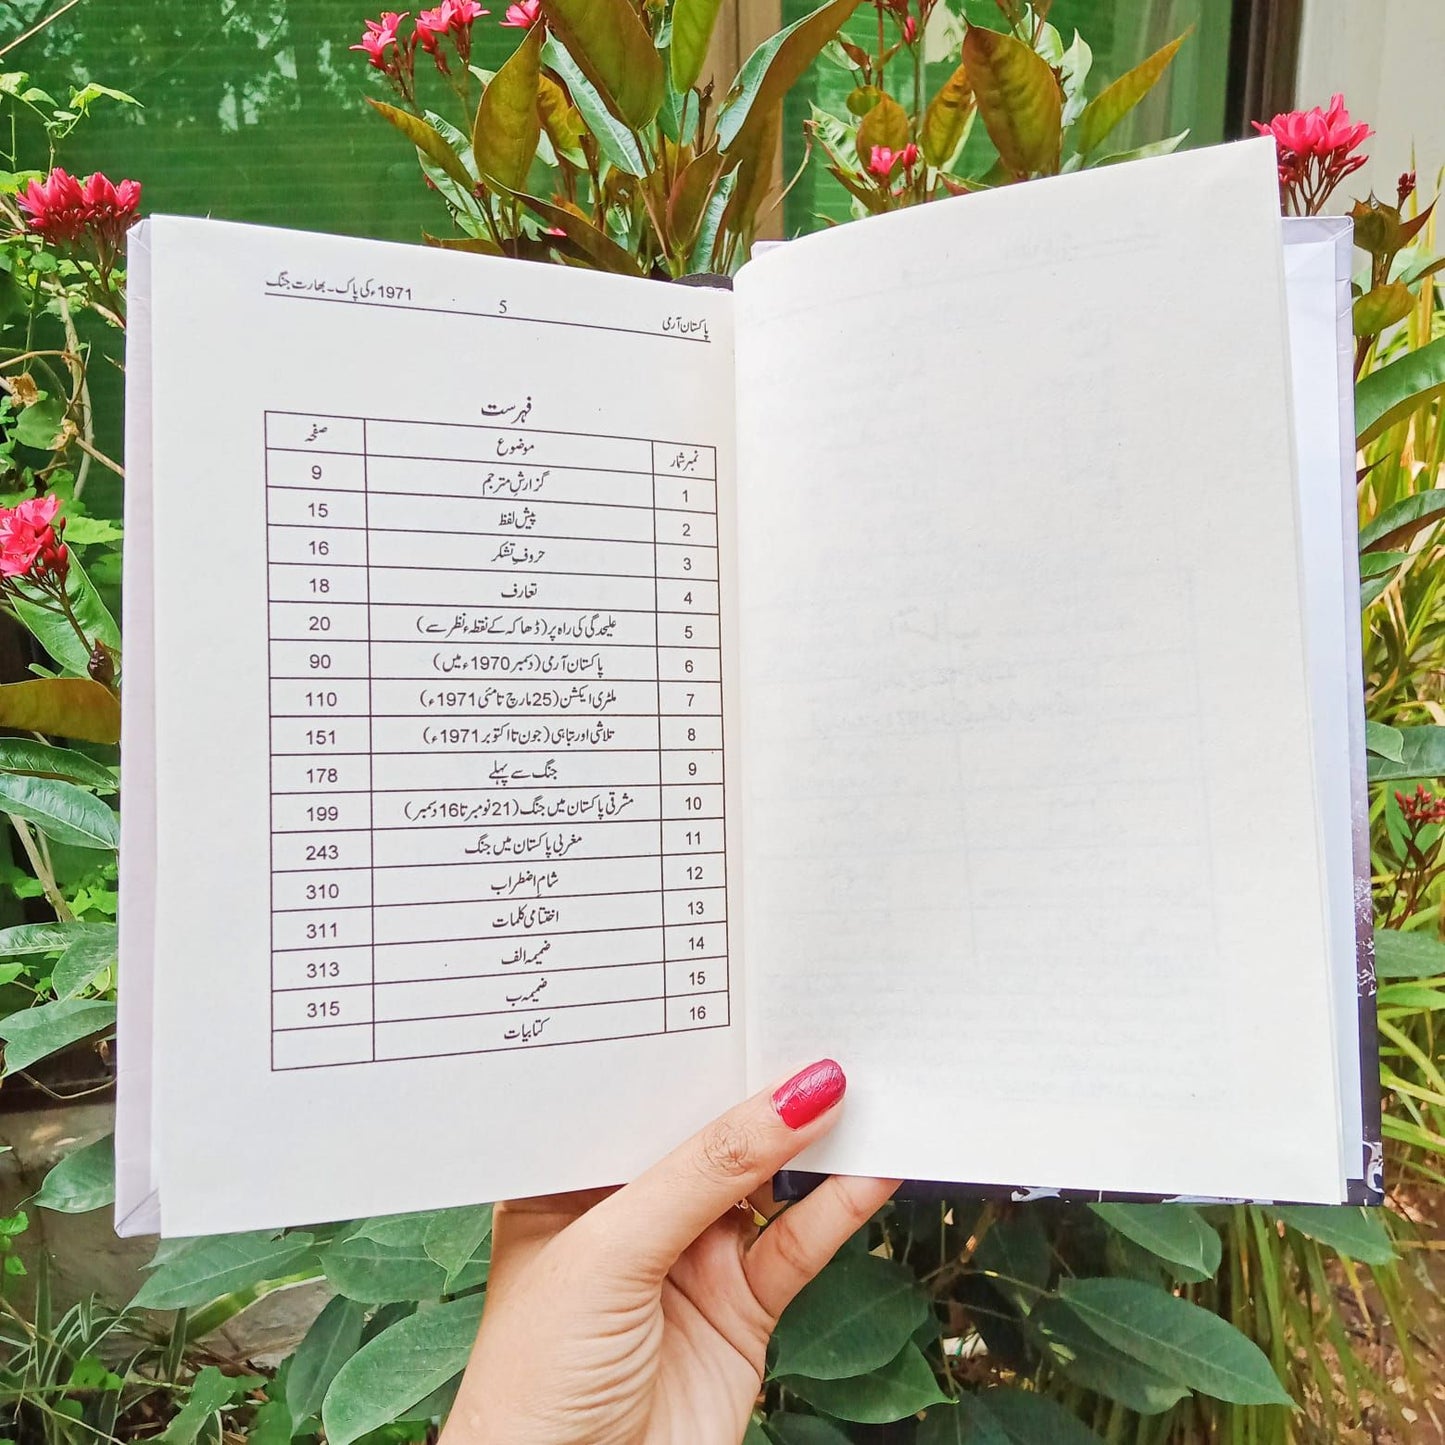 پاکستان آرمی 5 1971ء کی پاک۔بھارت جنگ
فہرست
نمبر شمار موضوع صفحہ
1 گزارشِ مترجم 9
2 پیش لفظ 15
3 حروفِ تشکر 16
4 تعارف 18
5 علیحدگی کی راہ پر (ڈھاکہ کے نقطہء نظر سے) 20
6 پاکستان آرمی (دسمبر 1970ء میں) 90
7 ملٹری ایکشن (25 مارچ تا مئی 1971ء) 110
8 تلاشی اور تباہی (جون تا اکتوبر 1971ء) 151
9 جنگ سے پہلے 178
10 مشرقی پاکستان میں جنگ (21 نومبر تا 16 دسمبر) 199
11 مغربی پاکستان میں جنگ 243
12 شامِ اضطراب 310
13 اختتامی کلمات 311
14 ضمیمہ الف 313
15 ضمیمہ ب 315
16 کتابیات